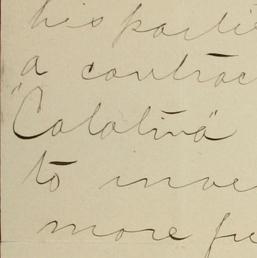 his parti
a contrac
"Calatina"
to inve
more fu